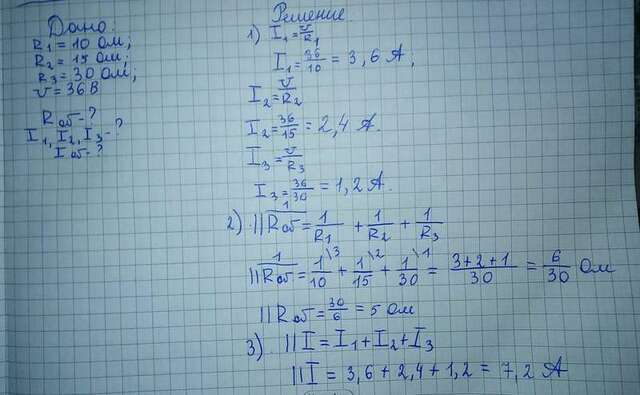 Дано:
R₁ = 10 Ом;
R₂ = 15 Ом;
R₃ = 30 Ом;
U = 36 В
Rоб - ?
I₁, I₂, I₃ - ?
Iоб - ?
Решение
1) I₁ = U/R₁
I₁ = 36/10 = 3,6 А;
I₂ = U/R₂
I₂ = 36/15 = 2,4 А.
I₃ = U/R₃
I₃ = 36/30 = 1,2 А.
2) || 1/Rоб = 1/R₁ + 1/R₂ + 1/R₃
|| 1/Rоб = 1\3/10 + 1\2/15 + 1\1/30 = 3+2+1/30 = 6/30 Ом
|| Rоб = 30/6 = 5 Ом
3) || I = I₁ + I₂ + I₃
|| I = 3,6 + 2,4 + 1,2 = 7,2 А